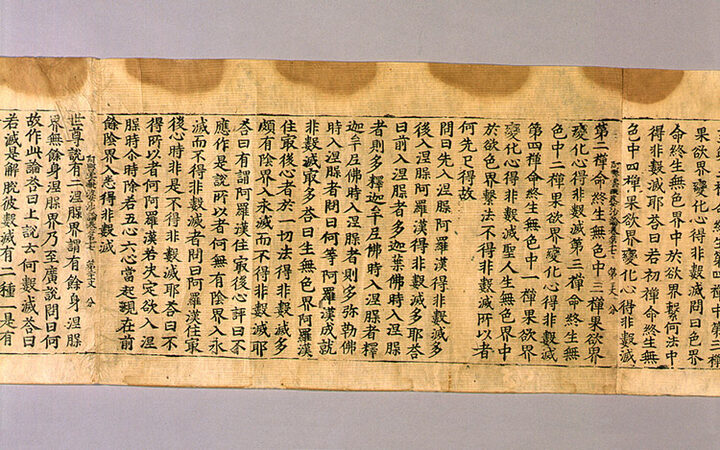 果欲界變化心得非數滅問曰色界
命終生無色界中於欲界繫何法中
得非數滅耶荅曰若初禪命終生無
色中四禪果欲界變化心得非數滅
第二禪命終生無色中三禪果欲界
變化心得非數滅第三禪命終生無
色中二禪果欲界變化心得非數滅
第四禪命終生無色中一禪果欲界
變化心得非數滅聖人生無色界中
於欲色界繫法不得非數滅所以者
何先已得故
問曰先入涅槃阿羅漢得非數滅多
後入涅槃阿羅漢得非數滅多耶荅
曰前入涅槃者多迦葉佛時入涅槃
者則多釋迦牟尼佛時入涅槃者釋
迦牟尼佛時入涅槃者則多弥勒佛
時入涅槃者問曰何等阿羅漢成就
非數滅冣多荅曰生無色界阿羅漢
住冣後心者於一切法得非數滅多
頗有陰界入永滅而不得非數滅耶
荅曰有謂阿羅漢住冣後心評曰不
應作是說所以者何無有陰界入永
滅而不得非數滅者問曰阿羅漢住
後心時非是不得非數滅耶荅曰不
得所以者何阿羅漢若決定欲入涅
槃時尒時除若五心六心當起現在前
餘陰界入悉得非數滅
世尊說有二涅槃界謂有餘身涅槃
界無餘身涅槃界乃至廣說問曰何
故作此論荅曰上說云何數滅荅曰
若滅是解脫彼數滅有二種一是有